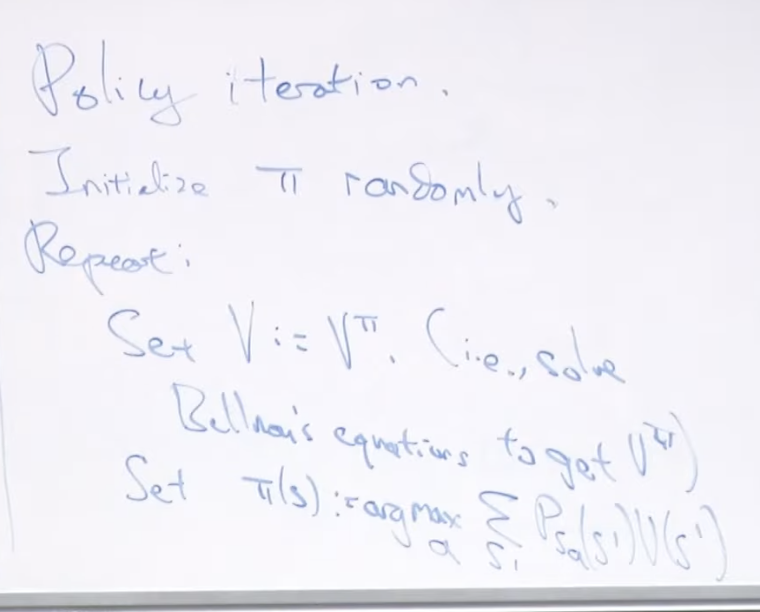 Policy iteration.
Initialize π randomly.
Repeat:
Set V := V^π. (i.e., solve
Bellman's equations to get V^π)
Set π(s) := argmax_a Σ_s' P_sa(s')V(s')